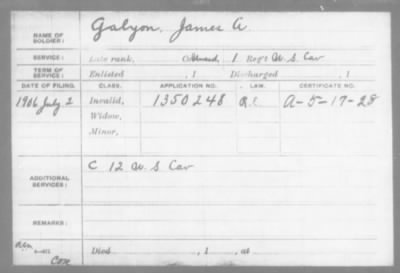 NAME OF SOLDIER: Galyon, James A
SERVICE: Late rank, Co. 1 Reg't U. S. Cav
TERM OF SERVICE: Enlisted , 1 Discharged , 1
DATE OF FILING. CLASS. APPLICATION NO. LAW. CERTIFICATE NO.
1906 July 2 Invalid, 1350248 A-5-17-28
Widow,
Minor,
ADDITIONAL SERVICES: C 12 U S Cav
REMARKS:
Died , 1 , at